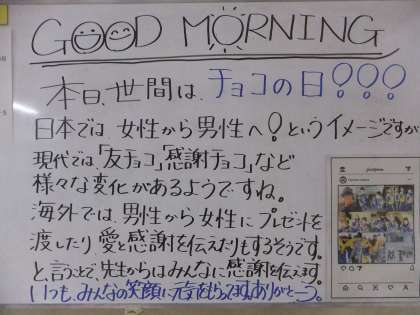 GOOD MORNING
本日、世間は、チョコの日!?!?!?
日本では、女性から男性へ!?というイメージですが
現代では、「友チョコ」「感謝チョコ」など
様々な変化があるようですね。
海外では、男性から女性にプレゼントを
渡したり、愛と感謝を伝えたりもするそうです。
と、言うことで、先生からはみんなに感謝を伝えます。
いつも、みんなの笑顔に元気をもらってます。ありがとう。